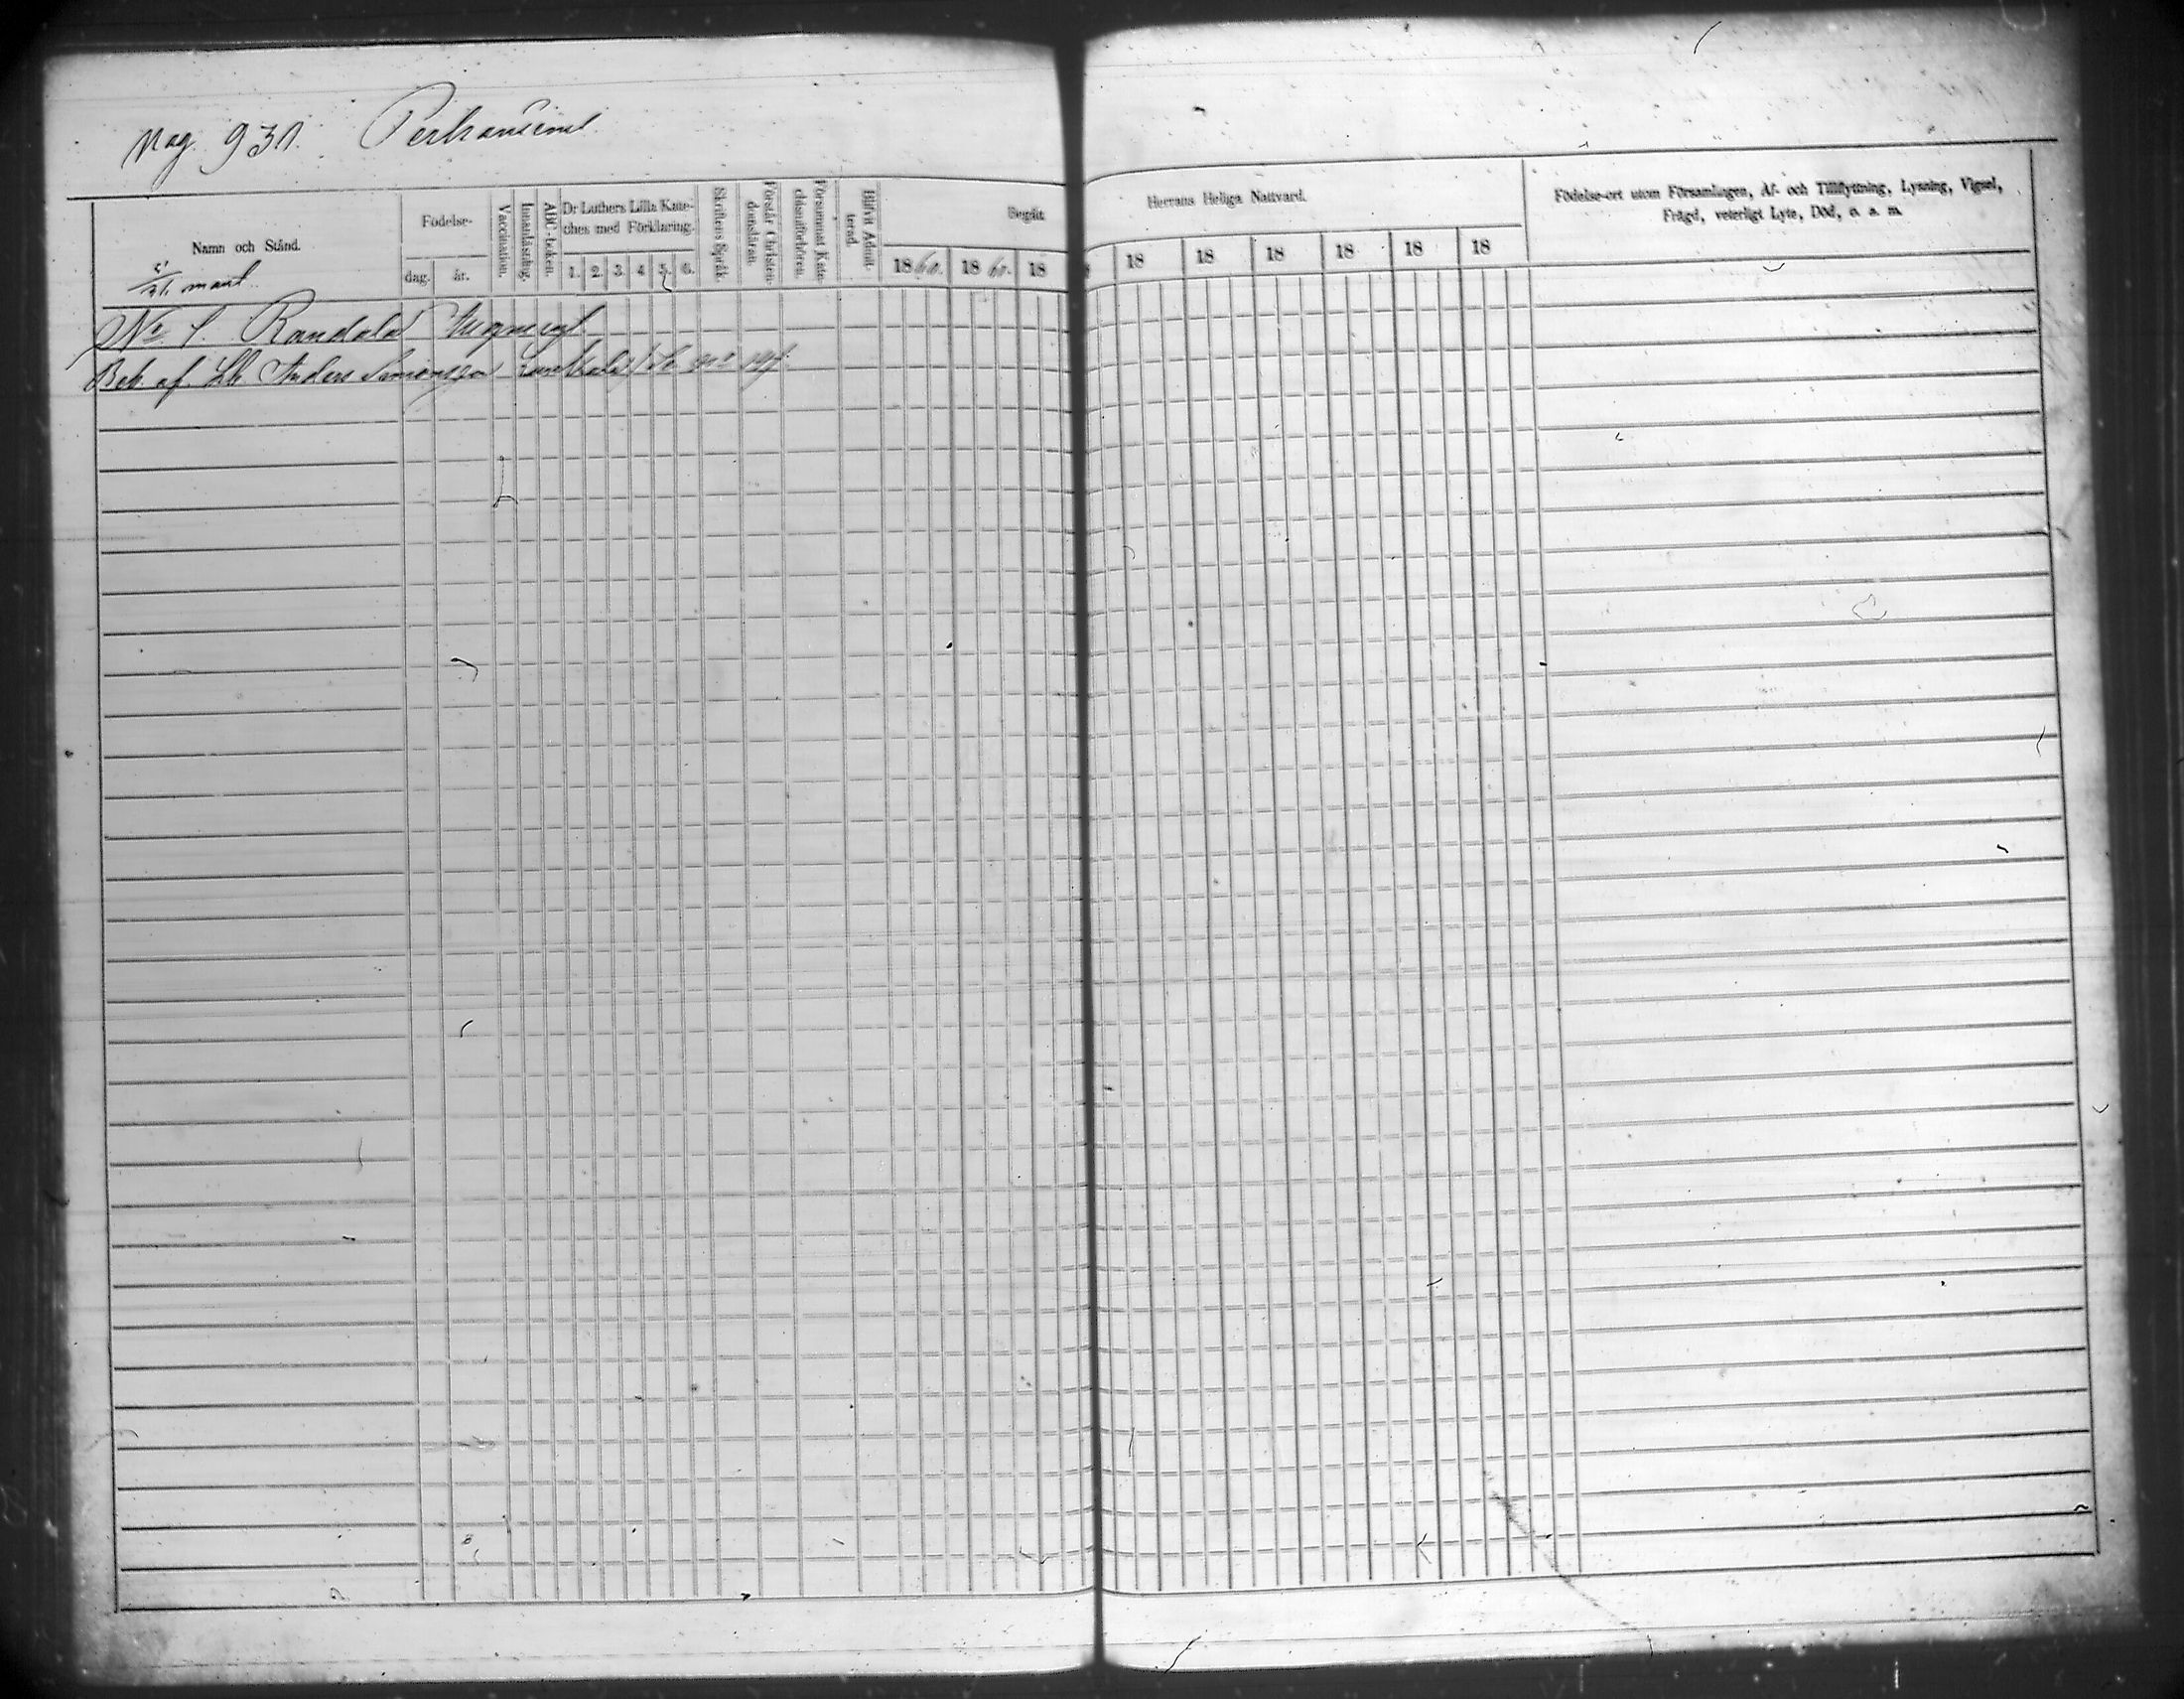 Pag. 931.
Namn och Stånd.
mant
Födelse-
dag.
år.
Vaccination.
Innanläsning.
ABC-boken.
Dr Luthers Lilla Kate-
ches med Förklaring.
1. 2. 3. 4 5. 6.
Skriftens Språk.
Förstår Christen-
domsläran.
Försummat Kate-
chismiförhören.
Blifvit Admit-
terad.
Begått
1860. 1860. 18
Herrans Heliga Nattvard.
18 18 18 18 18 18
Födelse-ort utom Församlingen, Af- och Tillflyttning, Lysning, Vigsel,
Frägd, veterligt Lyte, Död, o. s. m.
No 1. Randala
Beb. af Lb Anders Simonsson